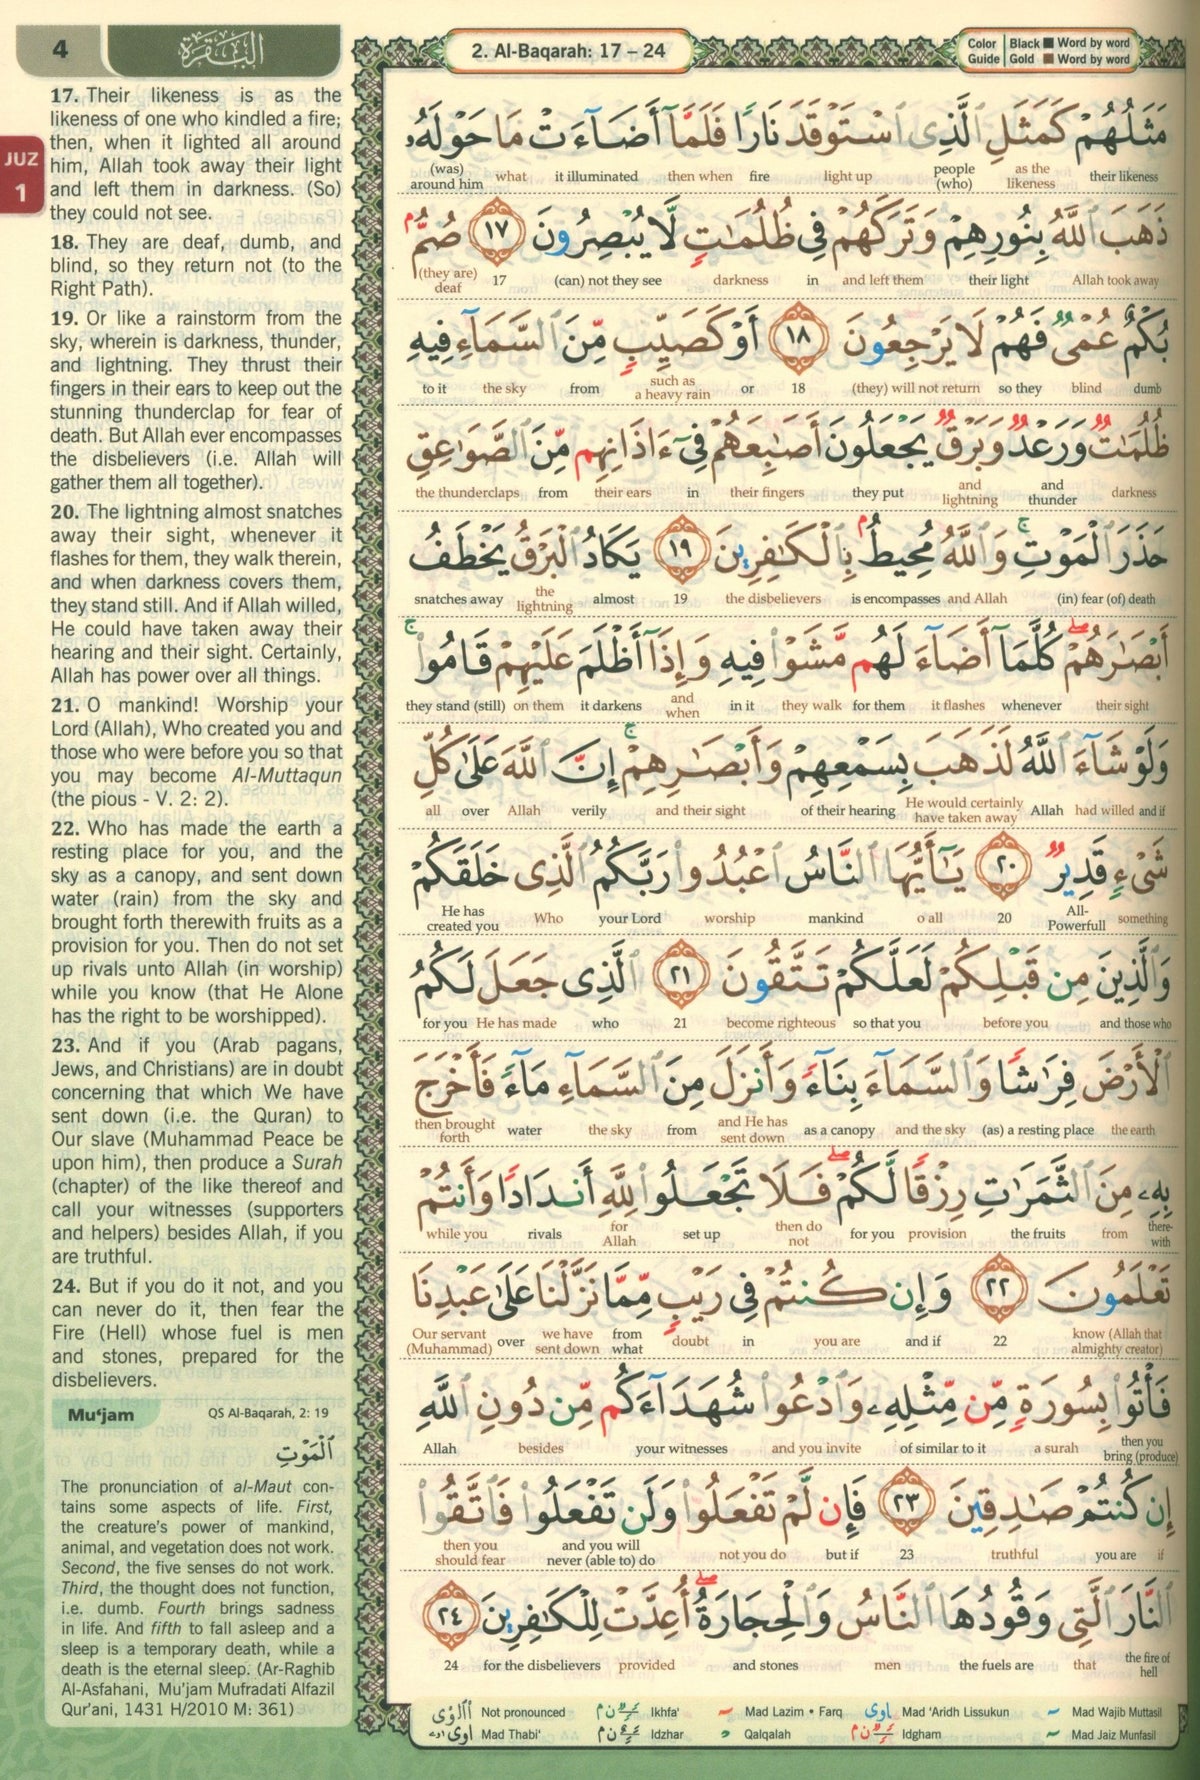 4
البقرة
2. Al-Baqarah: 17 – 24
Color Guide
Black Word by word
Gold Word by word
JUZ
1
17. Their likeness is as the
likeness of one who kindled a fire;
then, when it lighted all around
him, Allah took away their light
and left them in darkness. (So)
they could not see.
18. They are deaf, dumb, and
blind, so they return not (to the
Right Path).
19. Or like a rainstorm from the
sky, wherein is darkness, thunder,
and lightning. They thrust their
fingers in their ears to keep out the
stunning thunderclap for fear of
death. But Allah ever encompasses
the disbelievers (i.e. Allah will
gather them all together).
20. The lightning almost snatches
away their sight, whenever it
flashes for them, they walk therein,
and when darkness covers them,
they stand still. And if Allah willed,
He could have taken away their
hearing and their sight. Certainly,
Allah has power over all things.
21. O mankind! Worship your
Lord (Allah), Who created you and
those who were before you so that
you may become Al-Muttaqun
(the pious - V. 2: 2).
22. Who has made the earth a
resting place for you, and the
sky as a canopy, and sent down
water (rain) from the sky and
brought forth therewith fruits as a
provision for you. Then do not set
up rivals unto Allah (in worship)
while you know (that He Alone
has the right to be worshipped).
23. And if you (Arab pagans,
Jews, and Christians) are in doubt
concerning that which We have
sent down (i.e. the Quran) to
Our slave (Muhammad Peace be
upon him), then produce a Surah
(chapter) of the like thereof and
call your witnesses (supporters
and helpers) besides Allah, if you
are truthful.
24. But if you do it not, and you
can never do it, then fear the
Fire (Hell) whose fuel is men
and stones, prepared for the
disbelievers.
Mu‘jam
QS Al-Baqarah, 2: 19
ٱلْمَوْتِ
The pronunciation of al-Maut con-
tains some aspects of life. First,
the creature’s power of mankind,
animal, and vegetation does not work.
Second, the five senses do not work.
Third, the thought does not function,
i.e. dumb. Fourth brings sadness
in life. And fifth to fall asleep and a
sleep is a temporary death, while a
death is the eternal sleep. (Ar-Raghib
Al-Asfahani, Mu’jam Mufradati Alfazil
Qur’ani, 1431 H/2010 M: 361)
مَثَلُهُمْ كَمَثَلِ ٱلَّذِى ٱسْتَوْقَدَ نَارًا فَلَمَّآ أَضَآءَتْ مَا حَوْلَهُۥ
(was) around him what it illuminated then when fire light up people (who) as the likeness their likeness
ذَهَبَ ٱللَّهُ بِنُورِهِمْ وَتَرَكَهُمْ فِى ظُلُمَٰتٍ لَّا يُبْصِرُونَ ١٧ صُمٌّۢ
(they are) deaf 17 (can) not they see darkness in and left them their light Allah took away
بُكْمٌ عُمْىٌ فَهُمْ لَا يَرْجِعُونَ ١٨ أَوْ كَصَيِّبٍ مِّنَ ٱلسَّمَآءِ فِيهِ
to it the sky from such as a heavy rain or 18 (they) will not return so they blind dumb
ظُلُمَٰتٌ وَرَعْدٌ وَبَرْقٌ يَجْعَلُونَ أَصَٰبِعَهُمْ فِىٓ ءَاذَانِهِم مِّنَ ٱلصَّوَٰعِقِ
the thunderclaps from their ears in their fingers they put and lightning and thunder darkness
حَذَرَ ٱلْمَوْتِ ۚ وَٱللَّهُ مُحِيطٌۢ بِٱلْكَٰفِرِينَ ١٩ يَكَادُ ٱلْبَرْقُ يَخْطَفُ
snatches away the lightning almost 19 the disbelievers is encompasses and Allah (in) fear (of) death
أَبْصَٰرَهُمْ ۖ كُلَّمَآ أَضَآءَ لَهُم مَّشَوْا۟ فِيهِ وَإِذَآ أَظْلَمَ عَلَيْهِمْ قَامُوا۟ ۚ
they stand (still) on them it darkens and when in it they walk for them it flashes whenever their sight
وَلَوْ شَآءَ ٱللَّهُ لَذَهَبَ بِسَمْعِهِمْ وَأَبْصَٰرِهِمْ ۚ إِنَّ ٱللَّهَ عَلَىٰ كُلِّ
all over Allah verily and their sight of their hearing He would certainly have taken away Allah had willed and if
شَىْءٍ قَدِيرٌ ٢٠ يَٰٓأَيُّهَا ٱلنَّاسُ ٱعْبُدُوا۟ رَبَّكُمُ ٱلَّذِى خَلَقَكُمْ
He has created you Who your Lord worship mankind o all 20 All-Powerfull something
وَٱلَّذِينَ مِن قَبْلِكُمْ لَعَلَّكُمْ تَتَّقُونَ ٢١ ٱلَّذِى جَعَلَ لَكُمُ
for you He has made who 21 become righteous so that you before you and those who
ٱلْأَرْضَ فِرَٰشًا وَٱلسَّمَآءَ بِنَآءً وَأَنزَلَ مِنَ ٱلسَّمَآءِ مَآءً فَأَخْرَجَ
then brought forth water the sky from and He has sent down as a canopy and the sky (as) a resting place the earth
بِهِۦ مِنَ ٱلثَّمَرَٰتِ رِزْقًا لَّكُمْ ۖ فَلَا تَجْعَلُوا۟ لِلَّهِ أَندَادًا وَأَنتُمْ
while you rivals for Allah set up then do not for you provision the fruits from there-with
تَعْلَمُونَ ٢٢ وَإِن كُنتُمْ فِى رَيْبٍ مِّمَّا نَزَّلْنَا عَلَىٰ عَبْدِنَا
Our servant (Muhammad) over we have sent down from what doubt in you are and if 22 know (Allah that almighty creator)
فَأْتُوا۟ بِسُورَةٍ مِّن مِّثْلِهِۦ وَٱدْعُوا۟ شُهَدَآءَكُم مِّن دُونِ ٱللَّهِ
Allah besides your witnesses and you invite of similar to it a surah then you bring (produce)
إِن كُنتُمْ صَٰدِقِينَ ٢٣ فَإِن لَّمْ تَفْعَلُوا۟ وَلَن تَفْعَلُوا۟ فَٱتَّقُوا۟
then you should fear and you will never (able to) do not you do but if 23 truthful you are if
ٱلنَّارَ ٱلَّتِى وَقُودُهَا ٱلنَّاسُ وَٱلْحِجَارَةُ ۖ أُعِدَّتْ لِلْكَٰفِرِينَ ٢٤
24 for the disbelievers provided and stones men the fuels are that the fire of hell
Not pronounced Ikhfa' Mad Lazim • Farq Mad 'Aridh Lissukun Mad Wajib Muttasil
Mad Thabi' Idzhar Qalqalah Idgham Mad Jaiz Munfasil